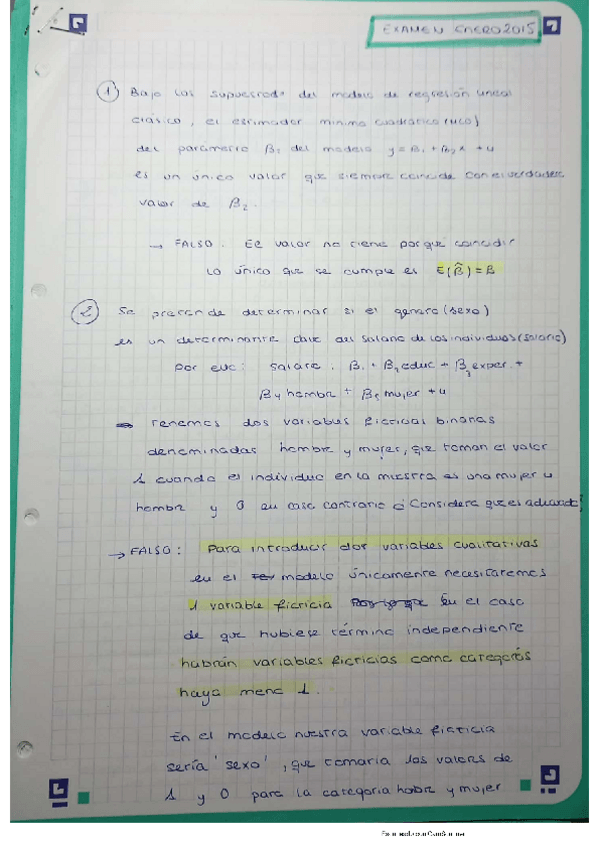 EXAMEN ENERO 2015
1 Bajo los supuestos del modelo de regresión lineal
clásico, el estimador mínimo cuadrático (MCO)
del parametro β2 del modelo y = β1 + β2 x + u
es un único valor que siempre coincide con el verdadero
valor de β2.
→ FALSO. El valor no tiene porque coincidir
lo único que se cumple es E(β̂) = β
2 Se pretende determinar si el genero (sexo)
es un determinante clave del salario de los individuos (salario)
por ello: salario = β1 + β2 educ + β3 exper. +
β4 hombre + β5 mujer + u
Tenemos dos variables ficticias binarias
denominadas hombre y mujer, que toman el valor
1 cuando el individuo en la muestra es una mujer u
hombre y 0 en caso contrario ¿Considera que es adecuado?
→ FALSO: Para introducir dos variables cualitativas
en el modelo únicamente necesitaremos
1 variable ficticia En el caso
de que hubiese término independiente
habrán variables ficticias como categorías
haya menos 1.
En el modelo nuestra variable ficticia
sería 'sexo', que tomaria los valores de
1 y 0 para la categoria hombre y mujer